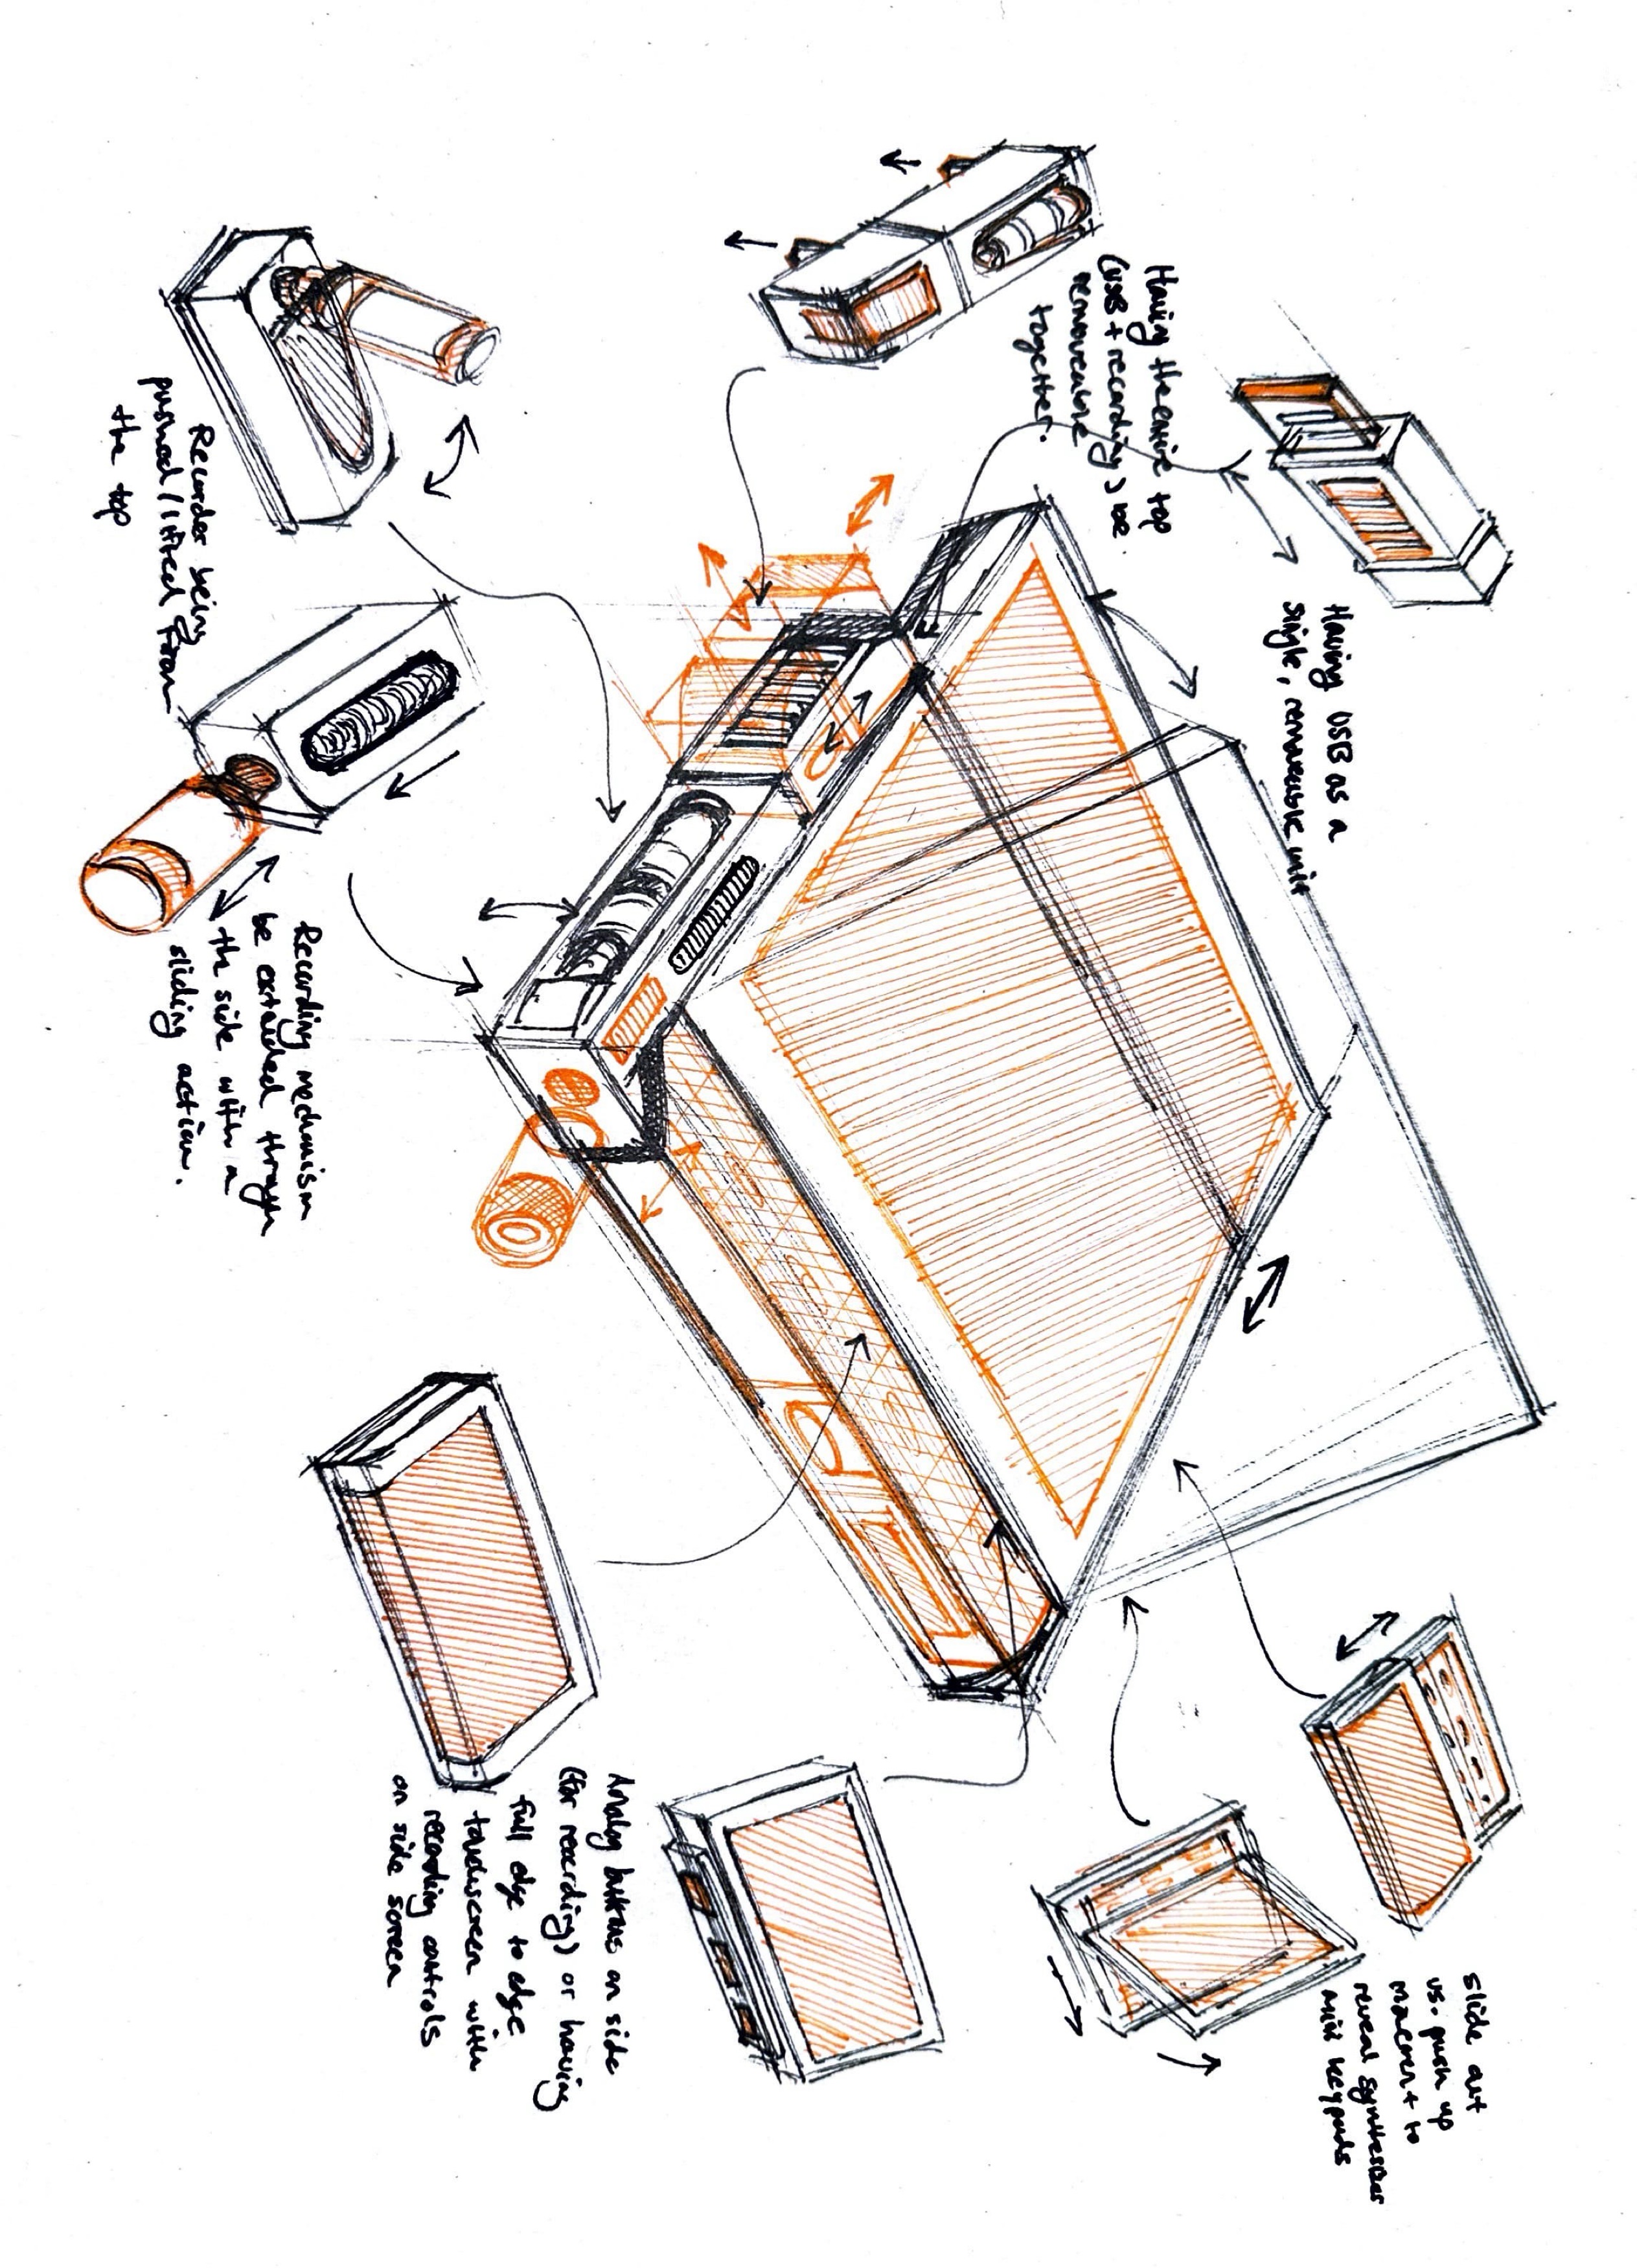 Having the entire top
(USB + recording) be
removeable
together.
Having USB as a
single, removeable unit
Recorder being
pushed/lifted from
the top
Recording mechanism
be extended through
the side with a
sliding action.
Analog buttons on side
(for recording) or having
full edge to edge
touchscreen with
recording controls
on side screen
slide out
vs. push up
movement to
reveal synthesizer
mini keypads